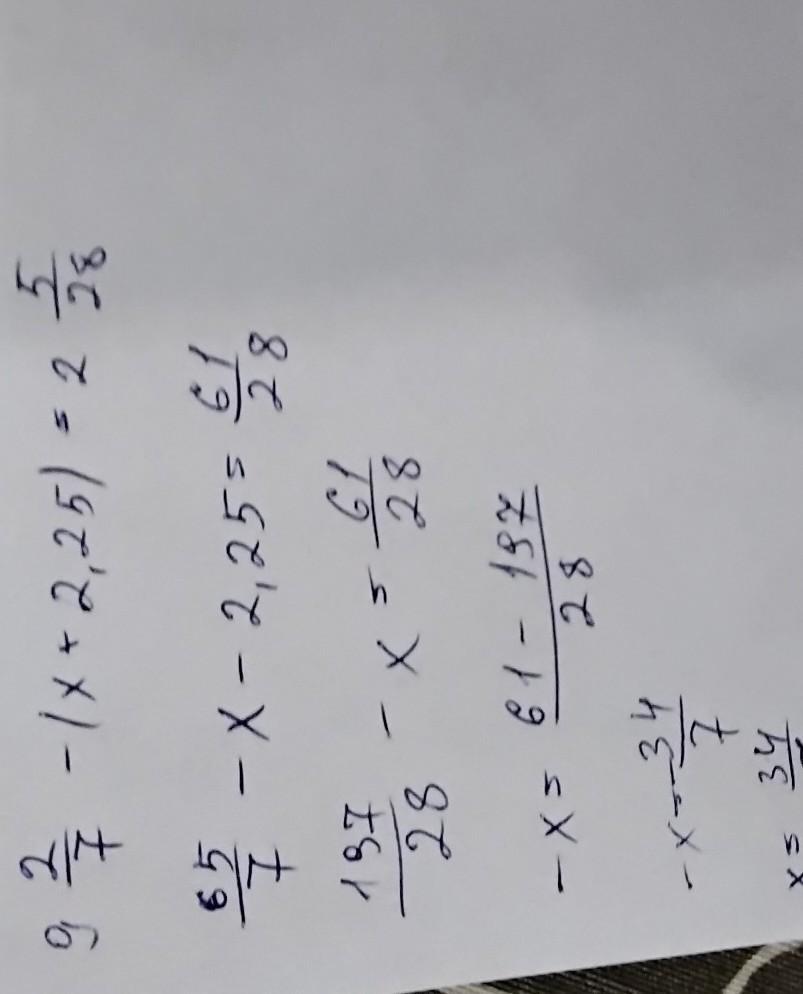 9 2/7 - (x + 2,25) = 2 5/28
65/7 - x - 2,25 = 61/28
197/28 - x = 61/28
-x = (61 - 197)/28
-x = -34/7
x = 34/